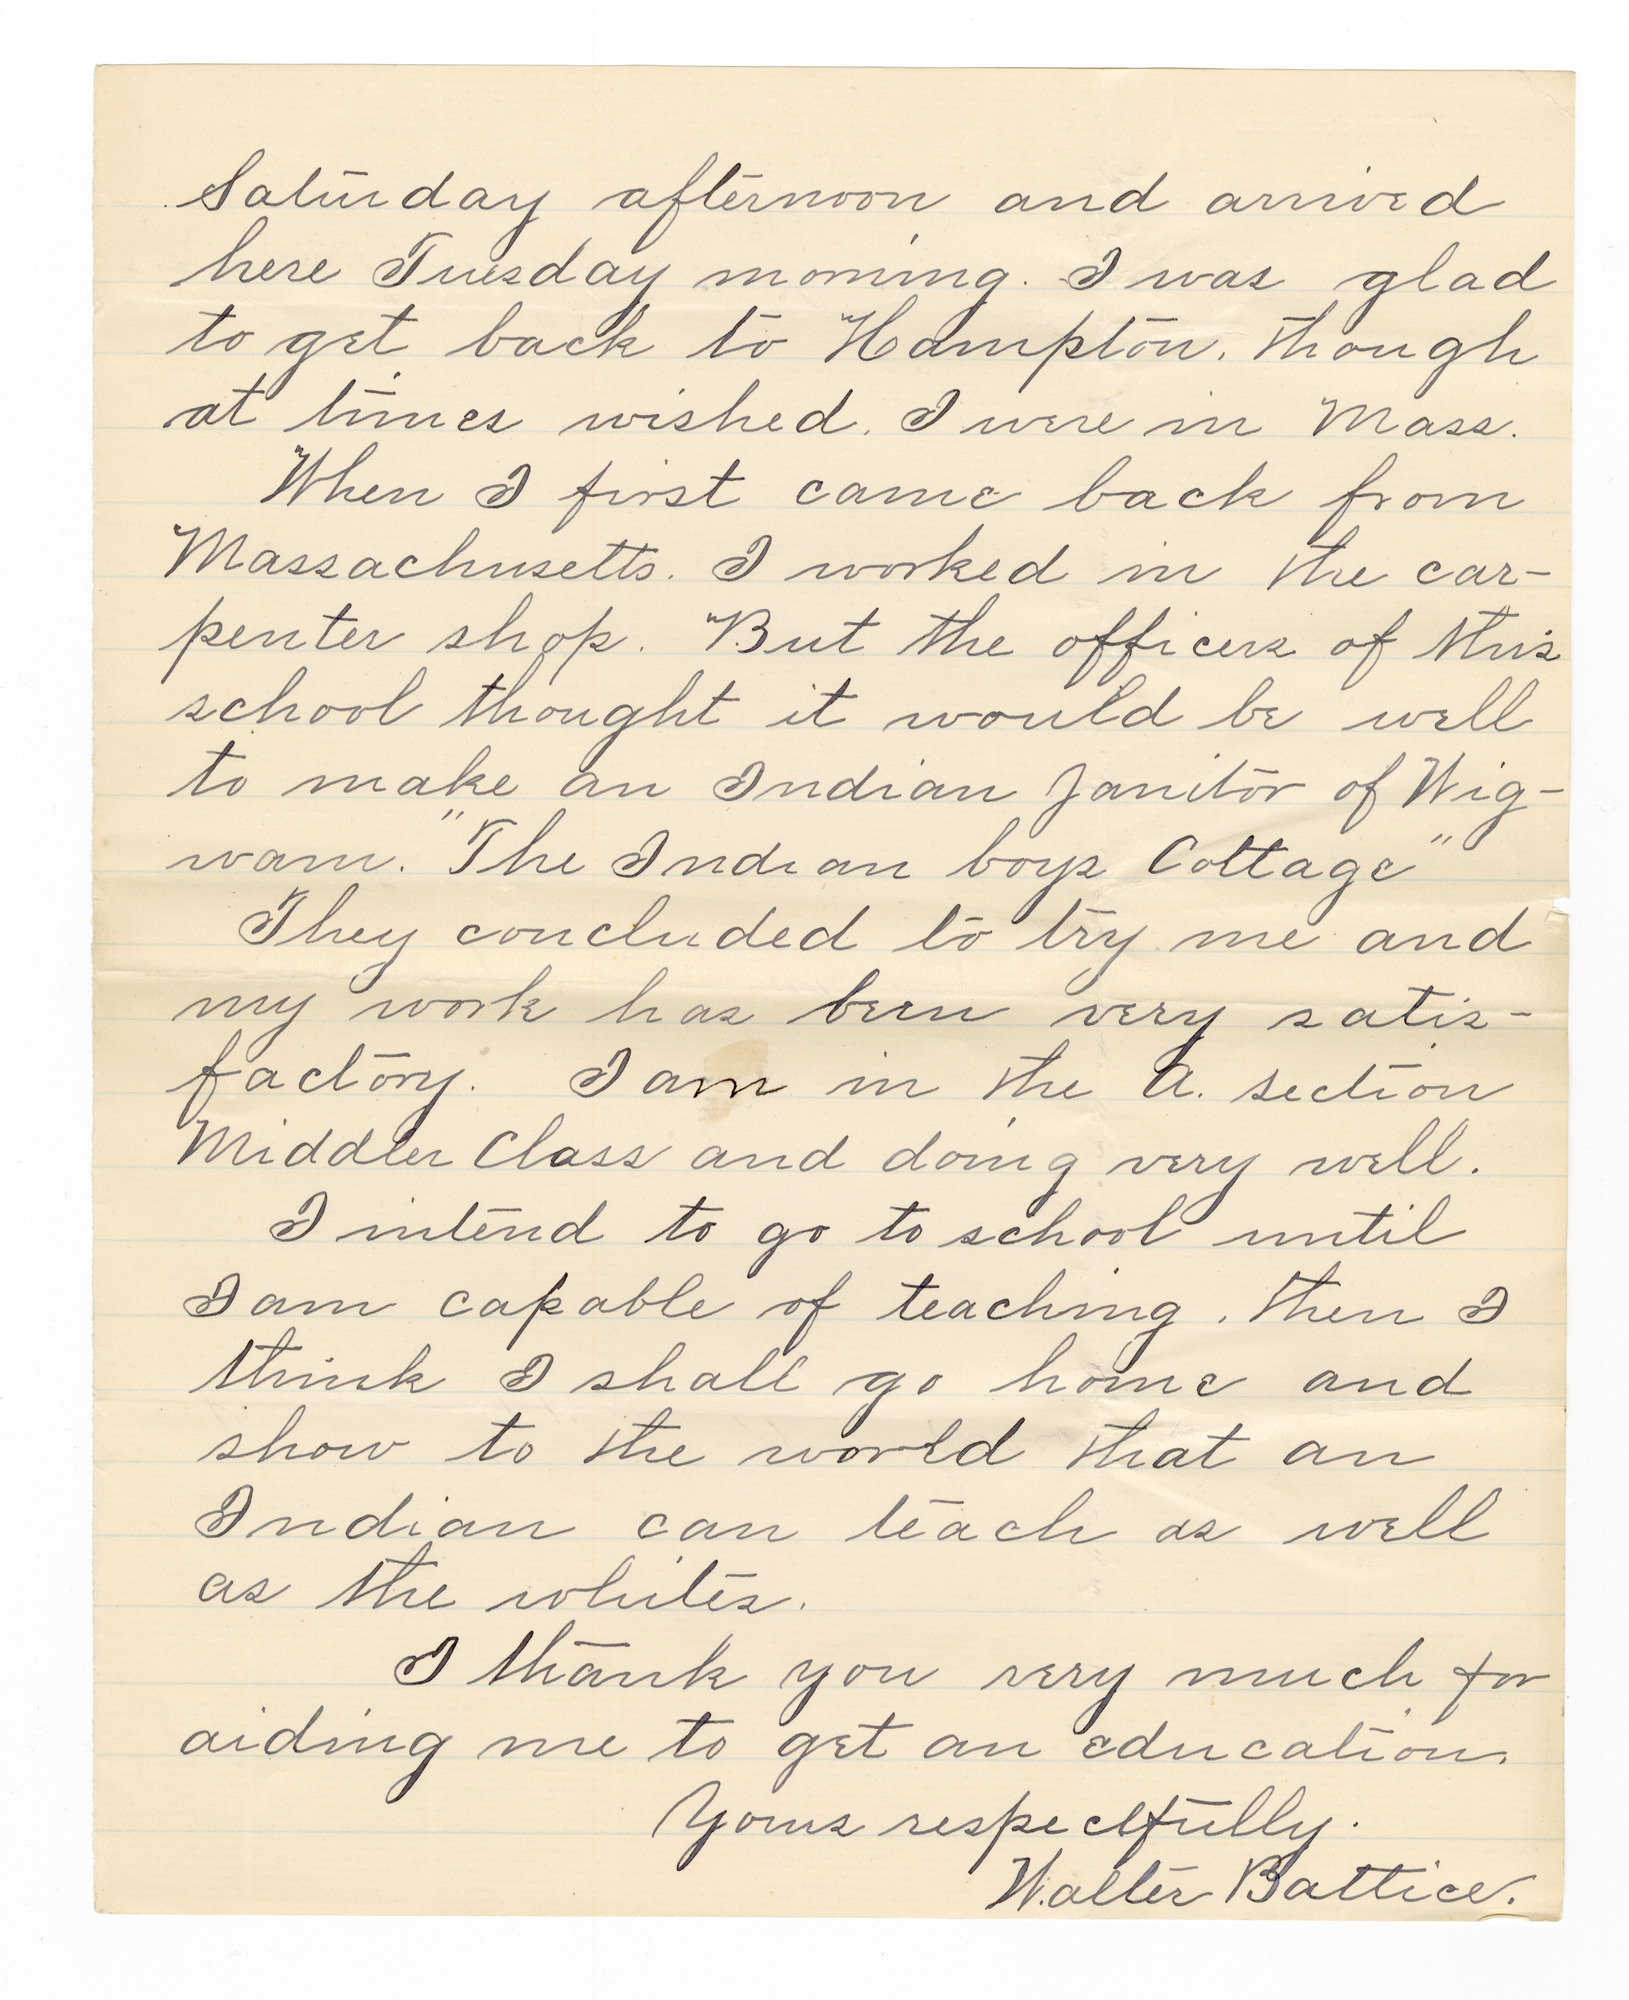 Saturday afternoon and arrived
here Tuesday morning. I was glad
to get back to Hampton, though
at times wished I were in Mass.
When I first came back from
Massachusetts. I worked in the car-
penter shop. But the officers of this
school thought it would be well
to make an Indian Janitor of Wig-
wam. "The Indian boys Cottage"
They concluded to try me and
my work has been very satis-
factory. I am in the A. section
Middler Class and doing very well.
I intend to go to school until
I am capable of teaching, then I
think I shall go home and
show to the world that an
Indian can teach as well
as the whites.
I thank you very much for
aiding me to get an education.
Yours respectfully.
Walter Battice.